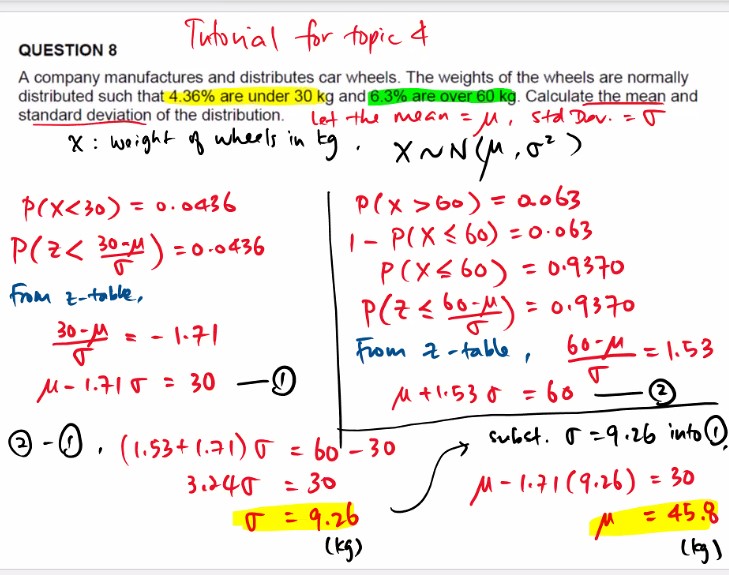 Tutorial for topic 4
QUESTION 8
A company manufactures and distributes car wheels. The weights of the wheels are normally
distributed such that 4.36% are under 30 kg and 6.3% are over 60 kg. Calculate the mean and
standard deviation of the distribution. let the mean = μ, std Dev. = σ
X : weight of wheels in kg . X ~ N(μ, σ²)
P(X<30) = 0.0436
P(Z < (30-μ)/σ) = 0.0436
From z-table,
(30-μ)/σ = -1.71
μ - 1.71σ = 30 — ①
P(X > 60) = 0.063
1 - P(X ≤ 60) = 0.063
P(X ≤ 60) = 0.9370
P(Z ≤ (60-μ)/σ) = 0.9370
From z-table, (60-μ)/σ = 1.53
μ + 1.53σ = 60 — ②
② - ①, (1.53+1.71)σ = 60 - 30
3.24σ = 30
σ = 9.26
(kg)
subst. σ = 9.26 into ①,
μ - 1.71(9.26) = 30
μ = 45.8
(kg)